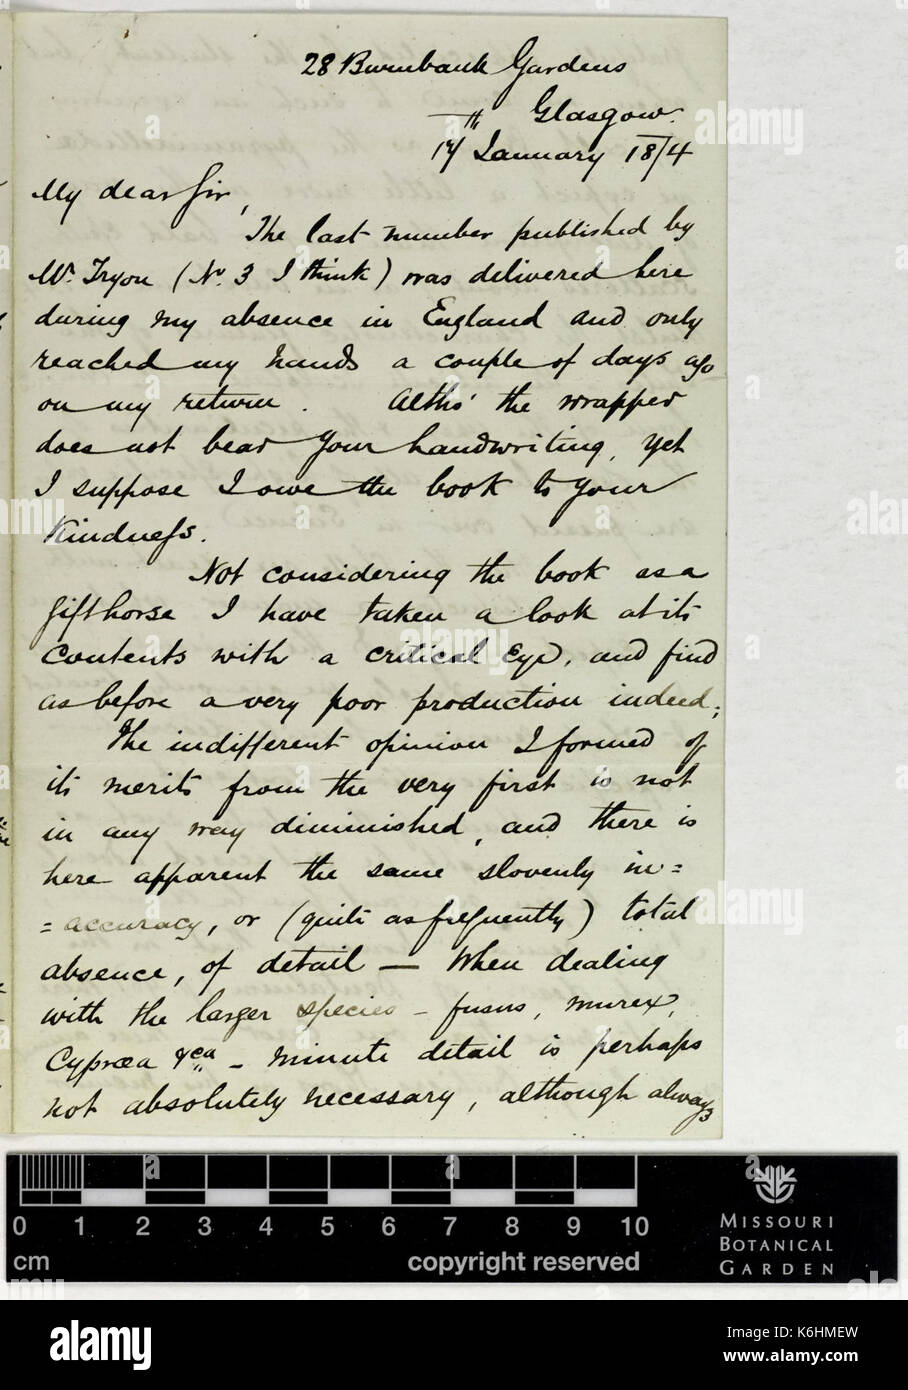 28 Burnbank Gardens
Glasgow.
17th January 1874
My dear Sir,
The last number published by
Mr. Tryon (No. 3 I think) was delivered here
during my absence in England and only
reached my hands a couple of days ago
on my return. Altho' the wrapper
does not bear your handwriting, yet
I suppose I owe the book to your
Kindness.
Not considering the book as a
gift horse I have taken a look at its
contents with a critical eye, and find
as before a very poor production indeed;
The indifferent opinion I formed of
its merits from the very first is not
in any way diminished, and there is
here apparent the same slovenly in=
=accuracy, or (quite as frequently) total
absence, of detail — When dealing
with the larger species - fusus, murex,
Cypræa &ca - minute detail is perhaps
not absolutely necessary, although always
0 1 2 3 4 5 6 7 8 9 10
cm
copyright reserved
MISSOURI
BOTANICAL
GARDEN
alamy
alamy stock photo
K6HMEW
www.alamy.com